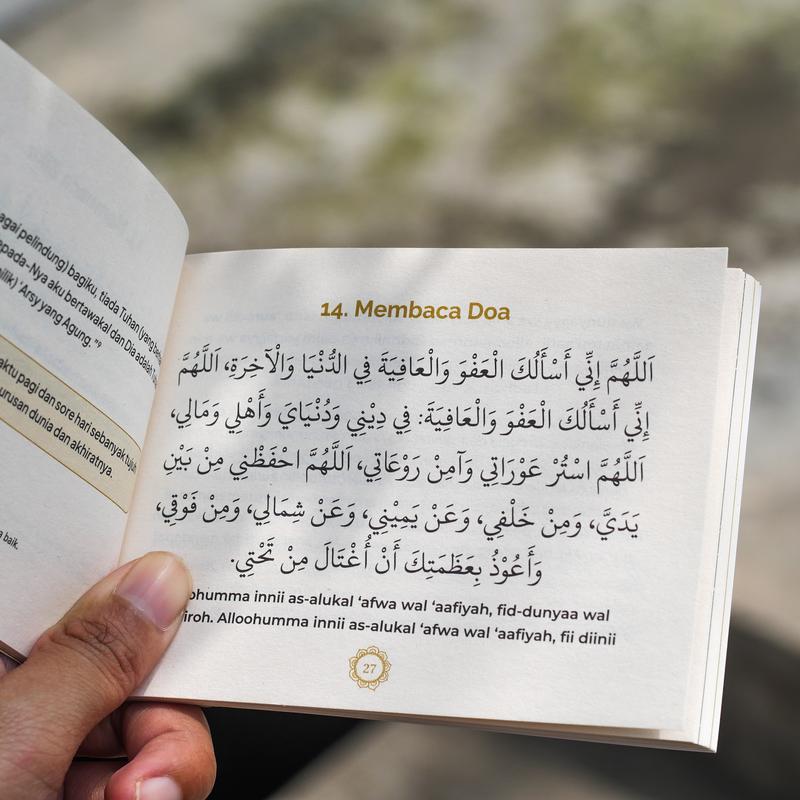 agai pelindung) bagiku, tiada Tuhan (yang
epada-Nya aku bertawakal dan Dia adalah
ilik) ‘Arsy yang Agung.”⁹
aktu pagi dan sore hari sebanyak tujuh
urusan dunia dan akhiratnya.
baik.
14. Membaca Doa
اَللَّهُمَّ إِنِّي أَسْأَلُكَ الْعَفْوَ وَالْعَافِيَةَ فِي الدُّنْيَا وَالْآخِرَةِ، اَللَّهُمَّ
إِنِّي أَسْأَلُكَ الْعَفْوَ وَالْعَافِيَةَ: فِي دِيْنِي وَدُنْيَايَ وَأَهْلِي وَمَالِي،
اَللَّهُمَّ اسْتُرْ عَوْرَاتِي وَآمِنْ رَوْعَاتِي، اَللَّهُمَّ احْفَظْنِي مِنْ بَيْنِ
يَدَيَّ، وَمِنْ خَلْفِي، وَعَنْ يَمِيْنِي، وَعَنْ شِمَالِي، وَمِنْ فَوْقِي،
وَأَعُوْذُ بِعَظَمَتِكَ أَنْ أُغْتَالَ مِنْ تَحْتِي.
ohumma innii as-alukal ‘afwa wal ‘aafiyah, fid-dunyaa wal
iroh. Alloohumma innii as-alukal ‘afwa wal ‘aafiyah, fii diinii
27